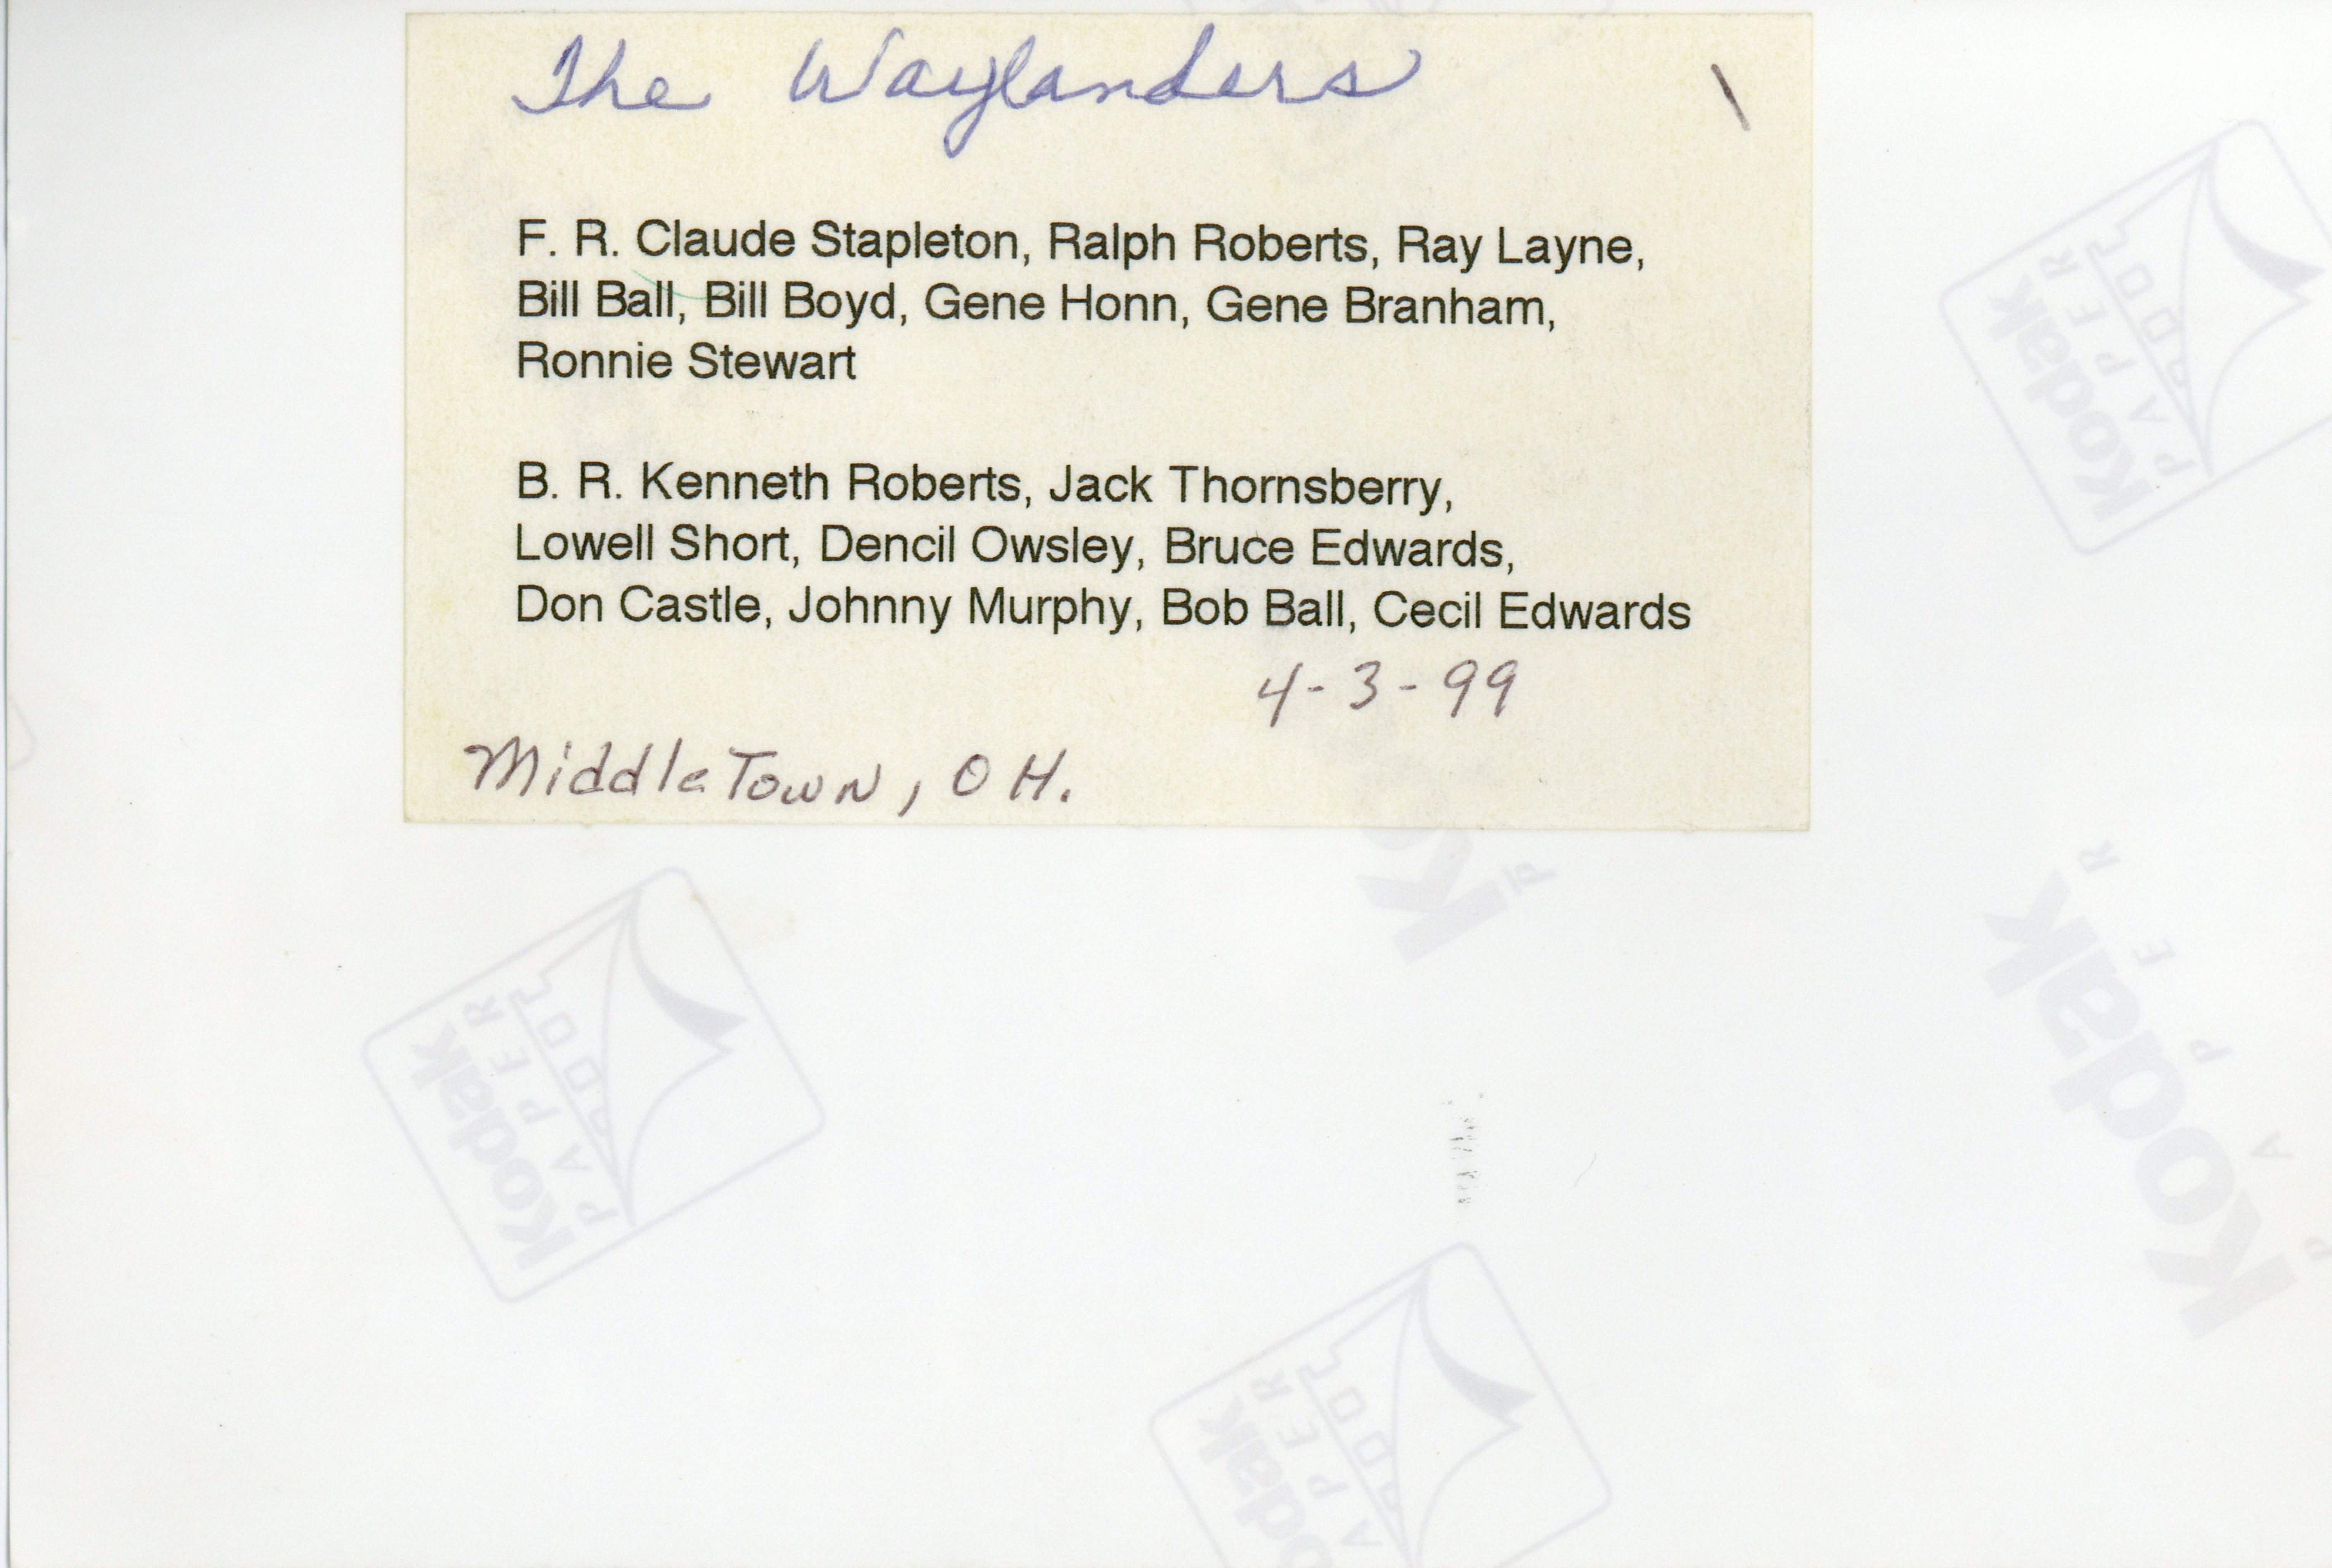 The Waylanders
F. R. Claude Stapleton, Ralph Roberts, Ray Layne,
Bill Ball, Bill Boyd, Gene Honn, Gene Branham,
Ronnie Stewart
B. R. Kenneth Roberts, Jack Thornsberry,
Lowell Short, Dencil Owsley, Bruce Edwards,
Don Castle, Johnny Murphy, Bob Ball, Cecil Edwards
4-3-99
MiddleTown, OH.
Kodak
PAPER
Kodak
PAPER
Kodak
PAPER
Kodak
APER